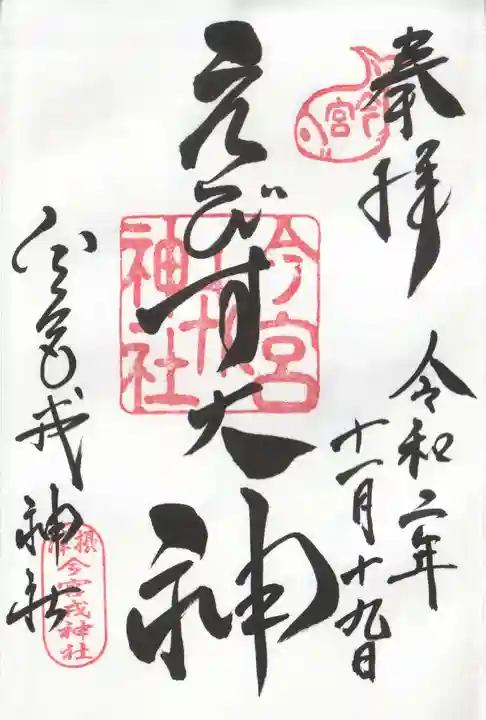 奉拝
令和二年
十一月十九日
えびす大神
今宮戎神社
今宮
今宮戎神社
摂津
今宮戎神社